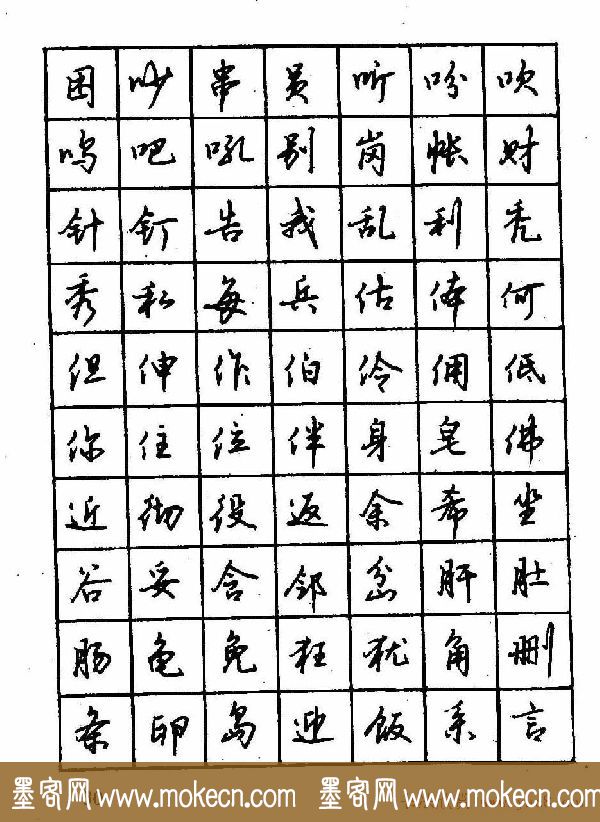 困吵串员听吩吹
呜吧吼别岗帐财
针钉告我乱利秃
秀私每兵估体何
但伸作伯伶佣低
你住位伴身皂佛
近彻役返余希坐
谷妥含邻岔肝肚
肠龟免狂犹角删
条卵岛迎饭系言
墨客网www.mokecn.com 墨客网www.mokecn.com